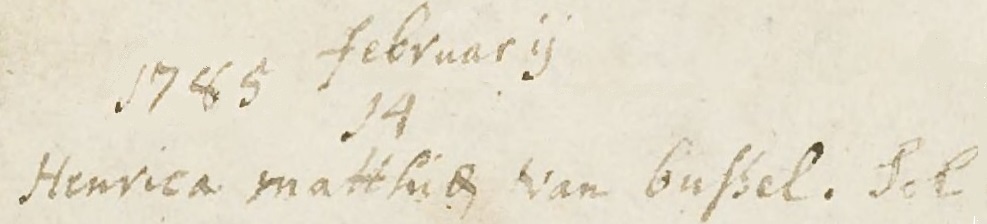 1785 februarij
14
Henrica matthiæ van bussel. Sol